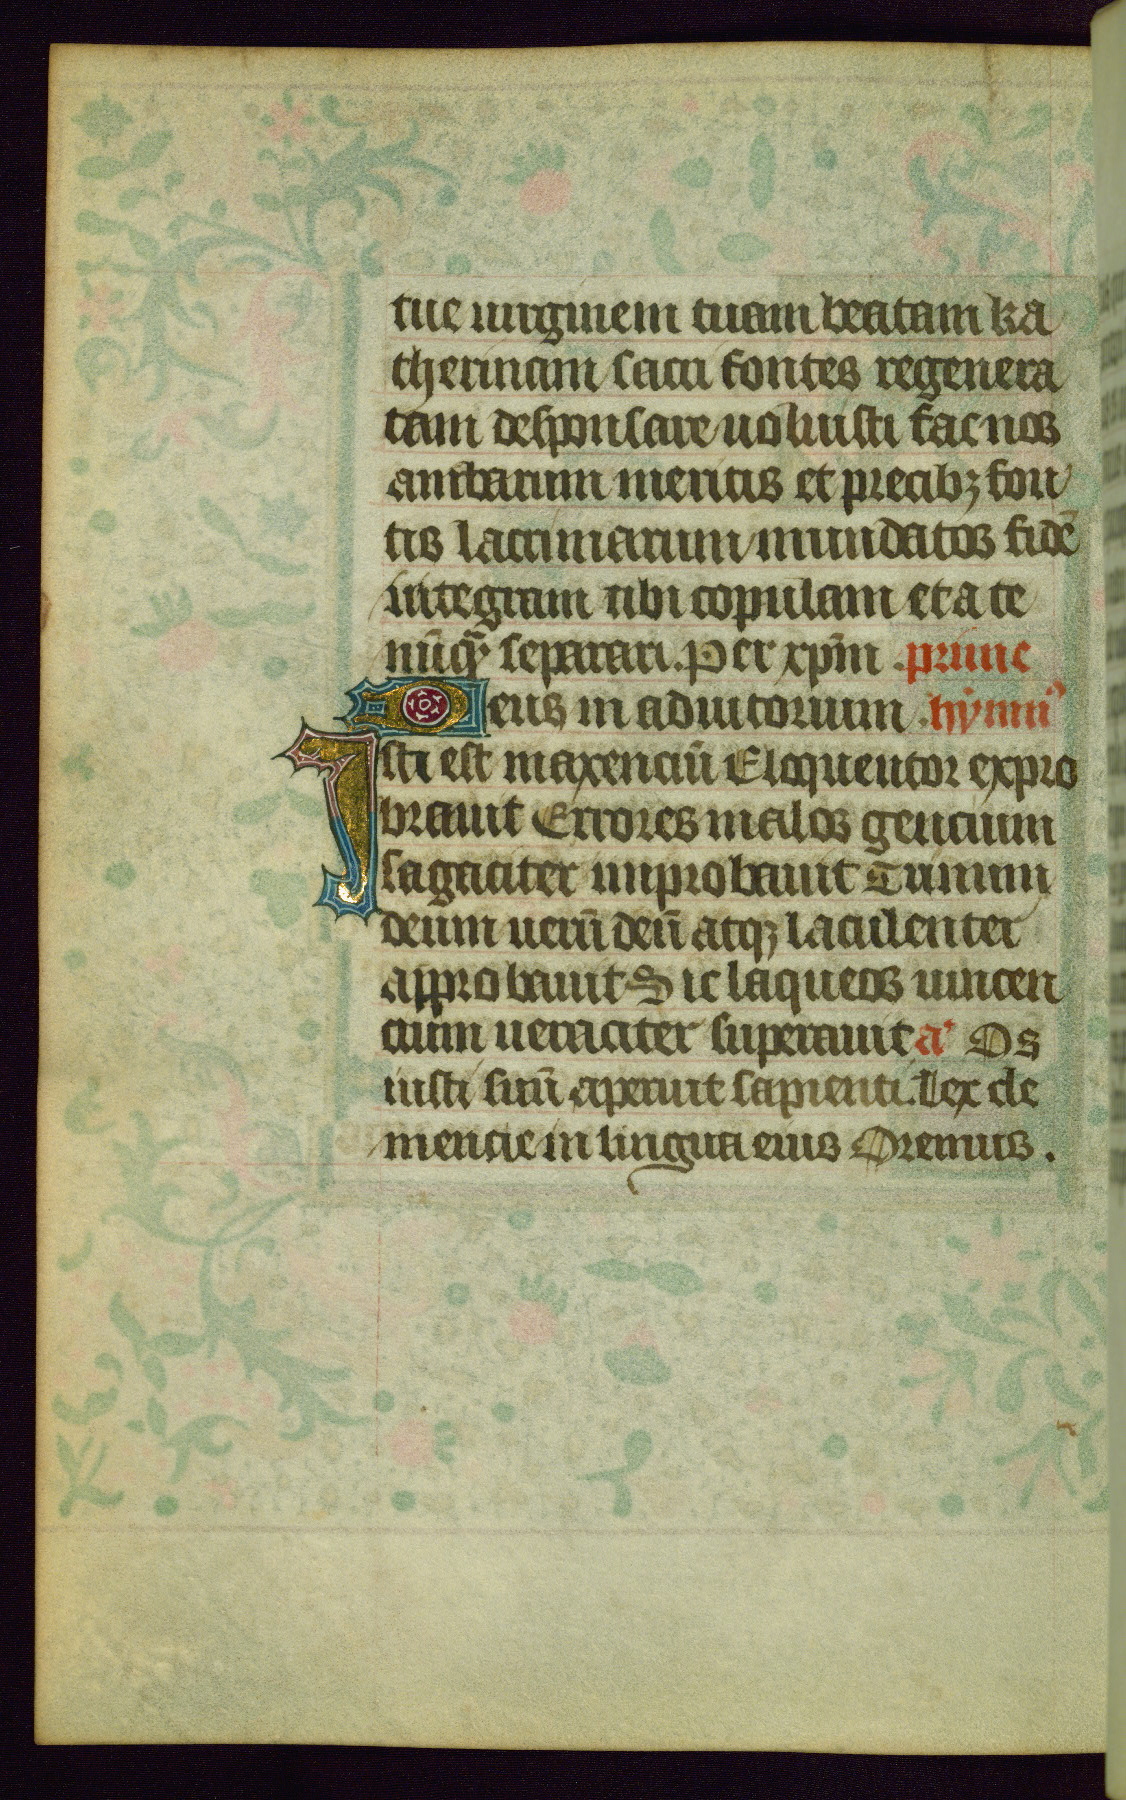 tue uirginem tuam beatam ka
therinam sacri fontes regenera
tam desponsare uoluisti fac nos
ambarum meritis et precibꝫ fon
tis lacrimarum mundatos fidē
integram tibi copulam et a te
nūqͣ separari. Per xp̄m . prime
Deus in adiutorium . hymnꝰ
Isti est maxenciū Eloquentor expro
brauit Errores malos gencium
sagaciter improbauit Tunum
deum uerū deū atqꝫ laculenter
approbauit Sic laqueos uincen
cium ueraciter superauit aͣ Os
iusti suū aperuit sapienti. Lex cle
mencie in lingua eius Oremus .